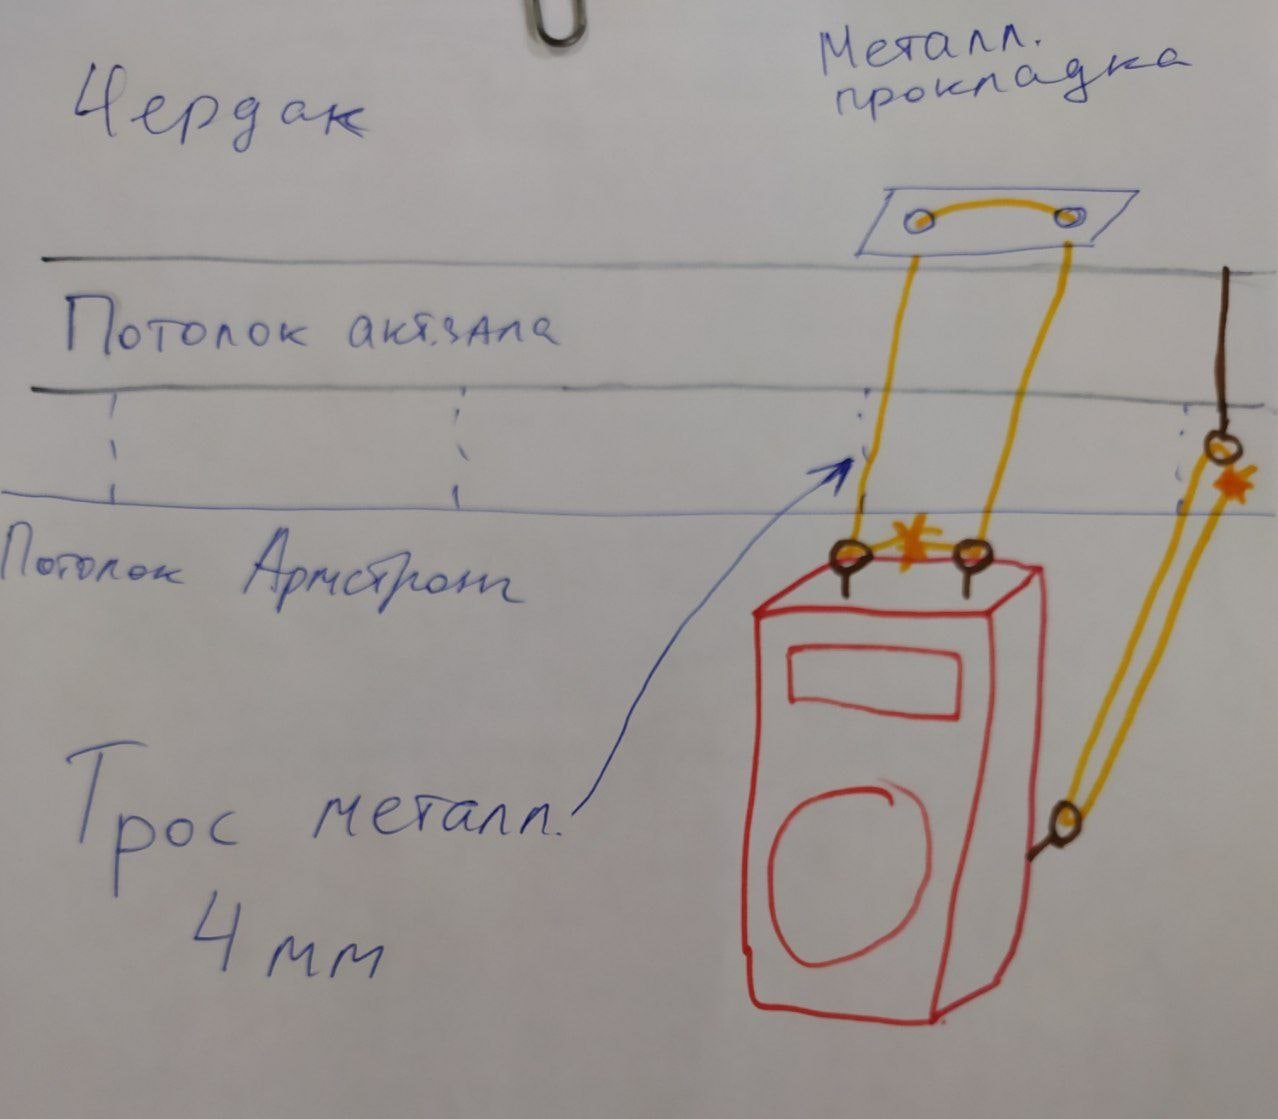 Металл.
прокладка
Чердак
Потолок акт.зала
Потолок Армстронг
Трос металл.
4 мм